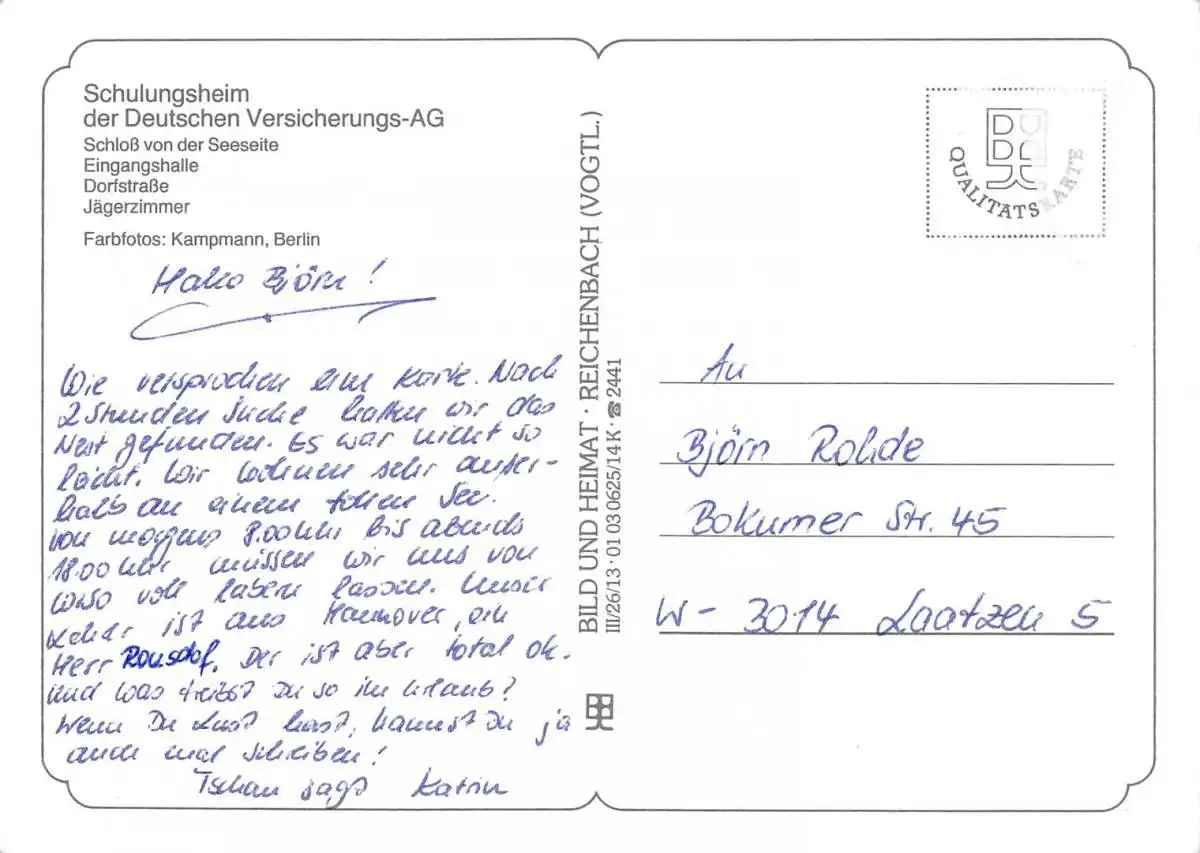 Schulungsheim
der Deutschen Versicherungs-AG
Schloß von der Seeseite
Eingangshalle
Dorfstraße
Jägerzimmer
Farbfotos: Kampmann, Berlin
Hallo Björn!
Wie versprochen eine Karte. Nach
2 Stunden Suche hatten wir das
Nest gefunden. Es war nicht so
leicht. Wir wohnen sehr außer-
halb an einem tollen See.
Von morgens 8.00 Uhr bis abends
18.00 Uhr müssen wir uns von
voll labern lassen. Unser
Lehrer ist aus Hannover, ein
Herr. Der ist aber total ok.
Und was treibst Du so im Urlaub?
Wenn Du Lust hast, kannst Du ja
auch mal schreiben!
Tschau sagt Katrin
BILD UND HEIMAT · REICHENBACH (VOGTL.)
III/26/13 · 01 03 0625/14 K · ☎ 2441
QUALITÄTSKARTE
An
Björn Rohde
Bokumer Str. 45
W-3014 Laatzen 5